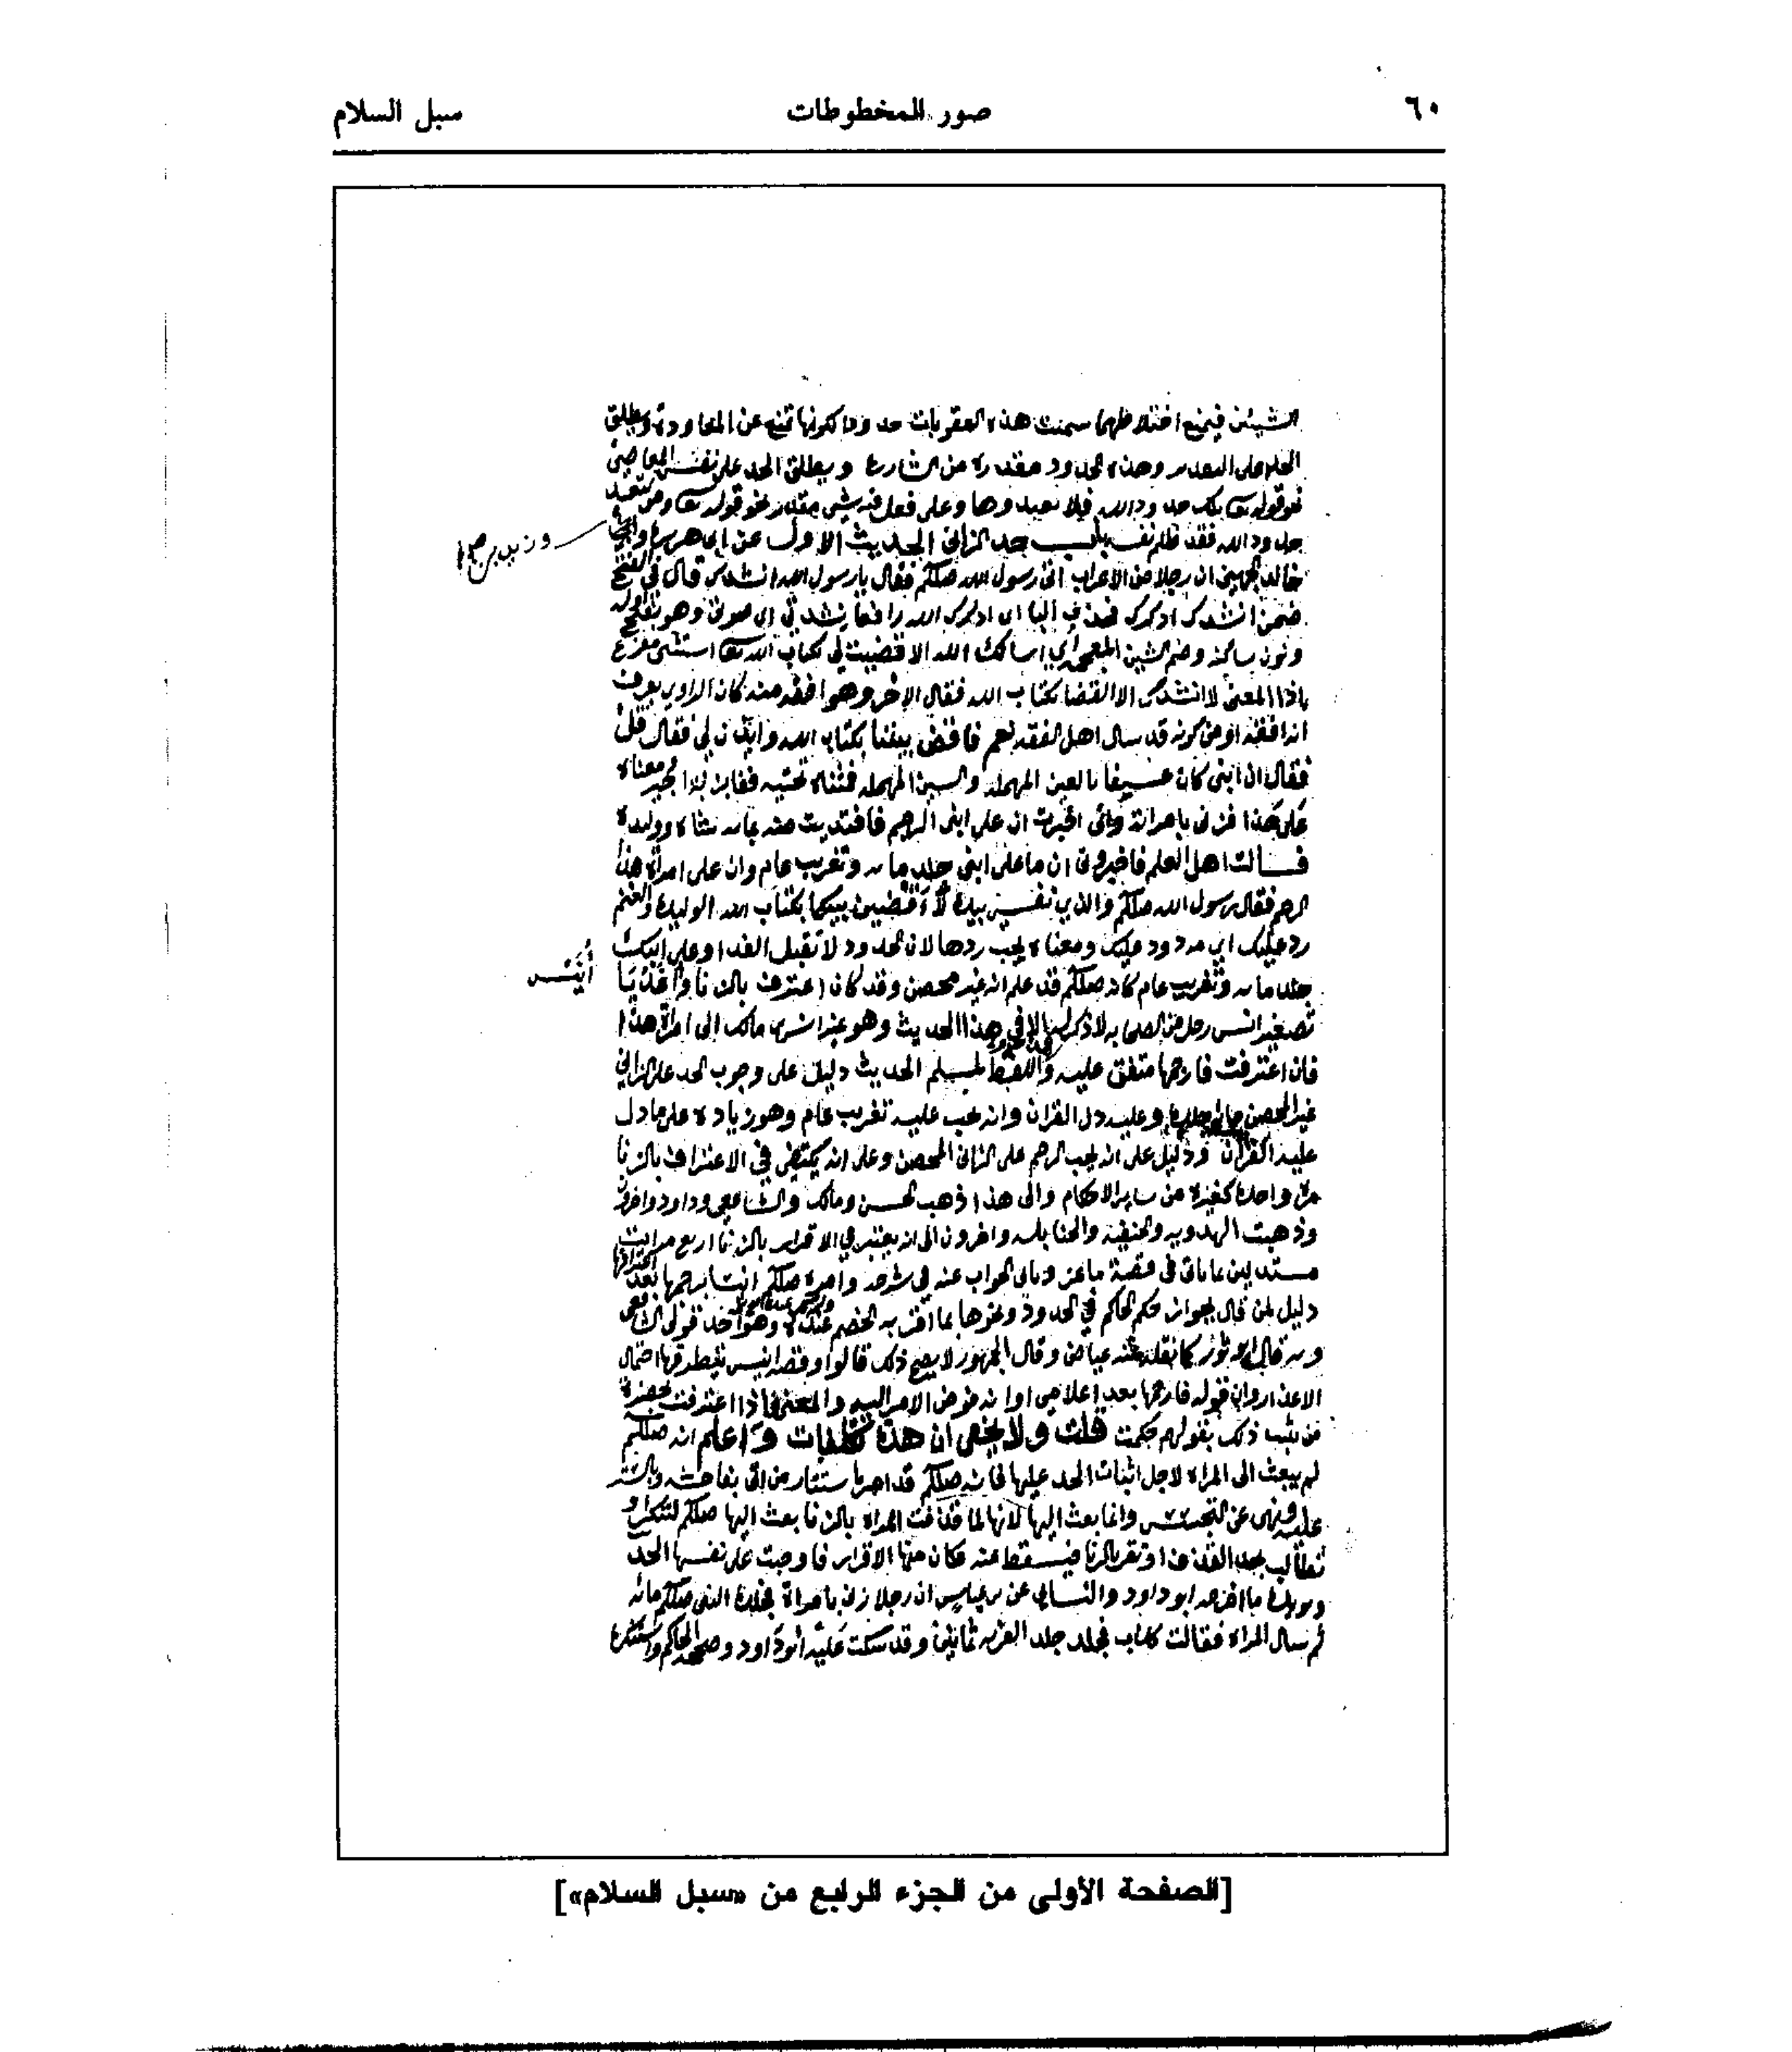 ٦٠ صور المخطوطات سبل السلام
الشيئين فيمنع اختلاطهما سميت هذه العقوبات حدودا لكونها تمنع عن المعاودة ويطلق
الحد على التقدير وهذه الحدود مقدرة من الشارع ويطلق الحد على نفس المعاصي
نحو قوله تعا تلك حدود الله فلا تعتدوها وعلى فعل فيه شي مقدر نحو قوله تعا ومن يتعد
حدود الله فقد ظلم نفسه باب حد الزاني الحديث الاول عن ابي هريرة
وزيد بن
خالد الجهني ان رجلا من الاعراب اتى رسول الله صللم فقال يا رسول الله انشدك قال في الفتح
ضمن انشدك اذكرك فحذف البا اي اذكرك الله رافعا نشدتي اي صوتي وهو بفتح اوله
ونون ساكنة وضم الشين المعجمة اي اسالك الله الا قضيت لي بكتاب الله تعا استثنى مفرغ
اذا المعنى لا انشدك الا القضا بكتاب الله فقال الاخر وهو افقه منه كان الراوي يعرف
انه افقه او من كونه قد سال اهل الفقه نعم فاقض بيننا بكتاب الله وايذن لي فقال قل
فقال ان ابني كان عسيفا بالعين المهملة والسين المهملة فمثناة تحتية ففا لاجير معناه
على هذا فزنى بامراته واني اخبرت ان على ابني الرجم فافتديت منه بمائة شاه ووليدة
فسالت اهل العلم فاخبروني ان ما على ابني جلد مايه وتغريب عام وان على امراة هذا
الرجم فقال رسول الله صللم والذي نفسي بيده لاقضين بينكما بكتاب الله الوليدة والغنم
رد عليك اي مردود عليك ومعناه يجب ردها لان الحدود لا تقبل الفدا وعلى ابنك
جلد مايه وتغريب عام كانه صللم قد علم انه غير محصن وقد كان اعترف بالزنا واغد يا
أُنَيْس
تصغير انس رجل من الصحابه لا ذكر له الا في هذا الحديث وهو غير انس بن مالك الى امراة هذا
فان اعترفت فارجمها متفق عليه واللفظ لمسلم الحديث دليل على وجوب الحد على الزاني
غير المحصن وعليه دل القران وانه يجب عليه تغريب عام وهو زيادة على ما دل
عليه القران ودليل على انه يجب الرجم على الزاني المحصن وعلى انه يكتفى في الاعتراف بالزنا
مرة واحدة كغيره من ساير الاحكام والى هذا ذهب الحسن ومالك والشافعي وداود واخرون
وذهبت الهدوية والحنفية والحنابلة واخرون الى انه يعتبر في الاقرار بالزنا اربع مرات
مستدلين بما ياتي في قصة ماعز وياتي الجواب عنه في شرحه وامره صللم انيسا برجمها بعد اعترافها
دليل لمن قال بجواز حكم الحاكم في الحدود ونحوها بما اقر به الخصم عنده وهو احد قولي الشافعي
وبه قال ابو ثور كما نقله عنه عياض وقال الجمهور لا يصح ذلك قالوا وقصة انيس يتطرقها احتمال
الاعذار وان قوله فارجمها بعد اعلامي او انه فوض الامر اليه والمعنى فاذا اعترفت بحضرة
من يثبت ذلك بقولهم حكمت قلت ولا يخفى ان هذه تكلفات واعلم انه صللم
لم يبعث الى المراة لاجل اثبات الحد عليها فانه صللم قد امر باستتار من اتى بفاحشه وبالستر
عليه ونهى عن التجسس وانما بعث اليها لانها لما قذفت المراة بالزنا بعث اليها صللم لتنكر او
تطالب بحد القذف او تقر بالزنا فيسقط عنه فكان منها الاقرار فاوجبت على نفسها الحد
ويويده ما اخرجه ابو داود والنسائي عن بن عباس ان رجلا زنى بامراة فجلده النبي صللم مائة
ثم سال المراة فقالت كذب فجلد جلد الفرية ثمانين وقد سكت عليه ابو داود وصححه الحاكم واستنكره
[الصفحة الأولى من الجزء الرابع من «سبل السلام»]